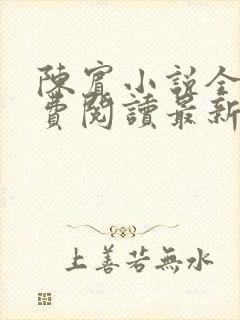 陳賓小說全
費閱讀最新
上善若無水